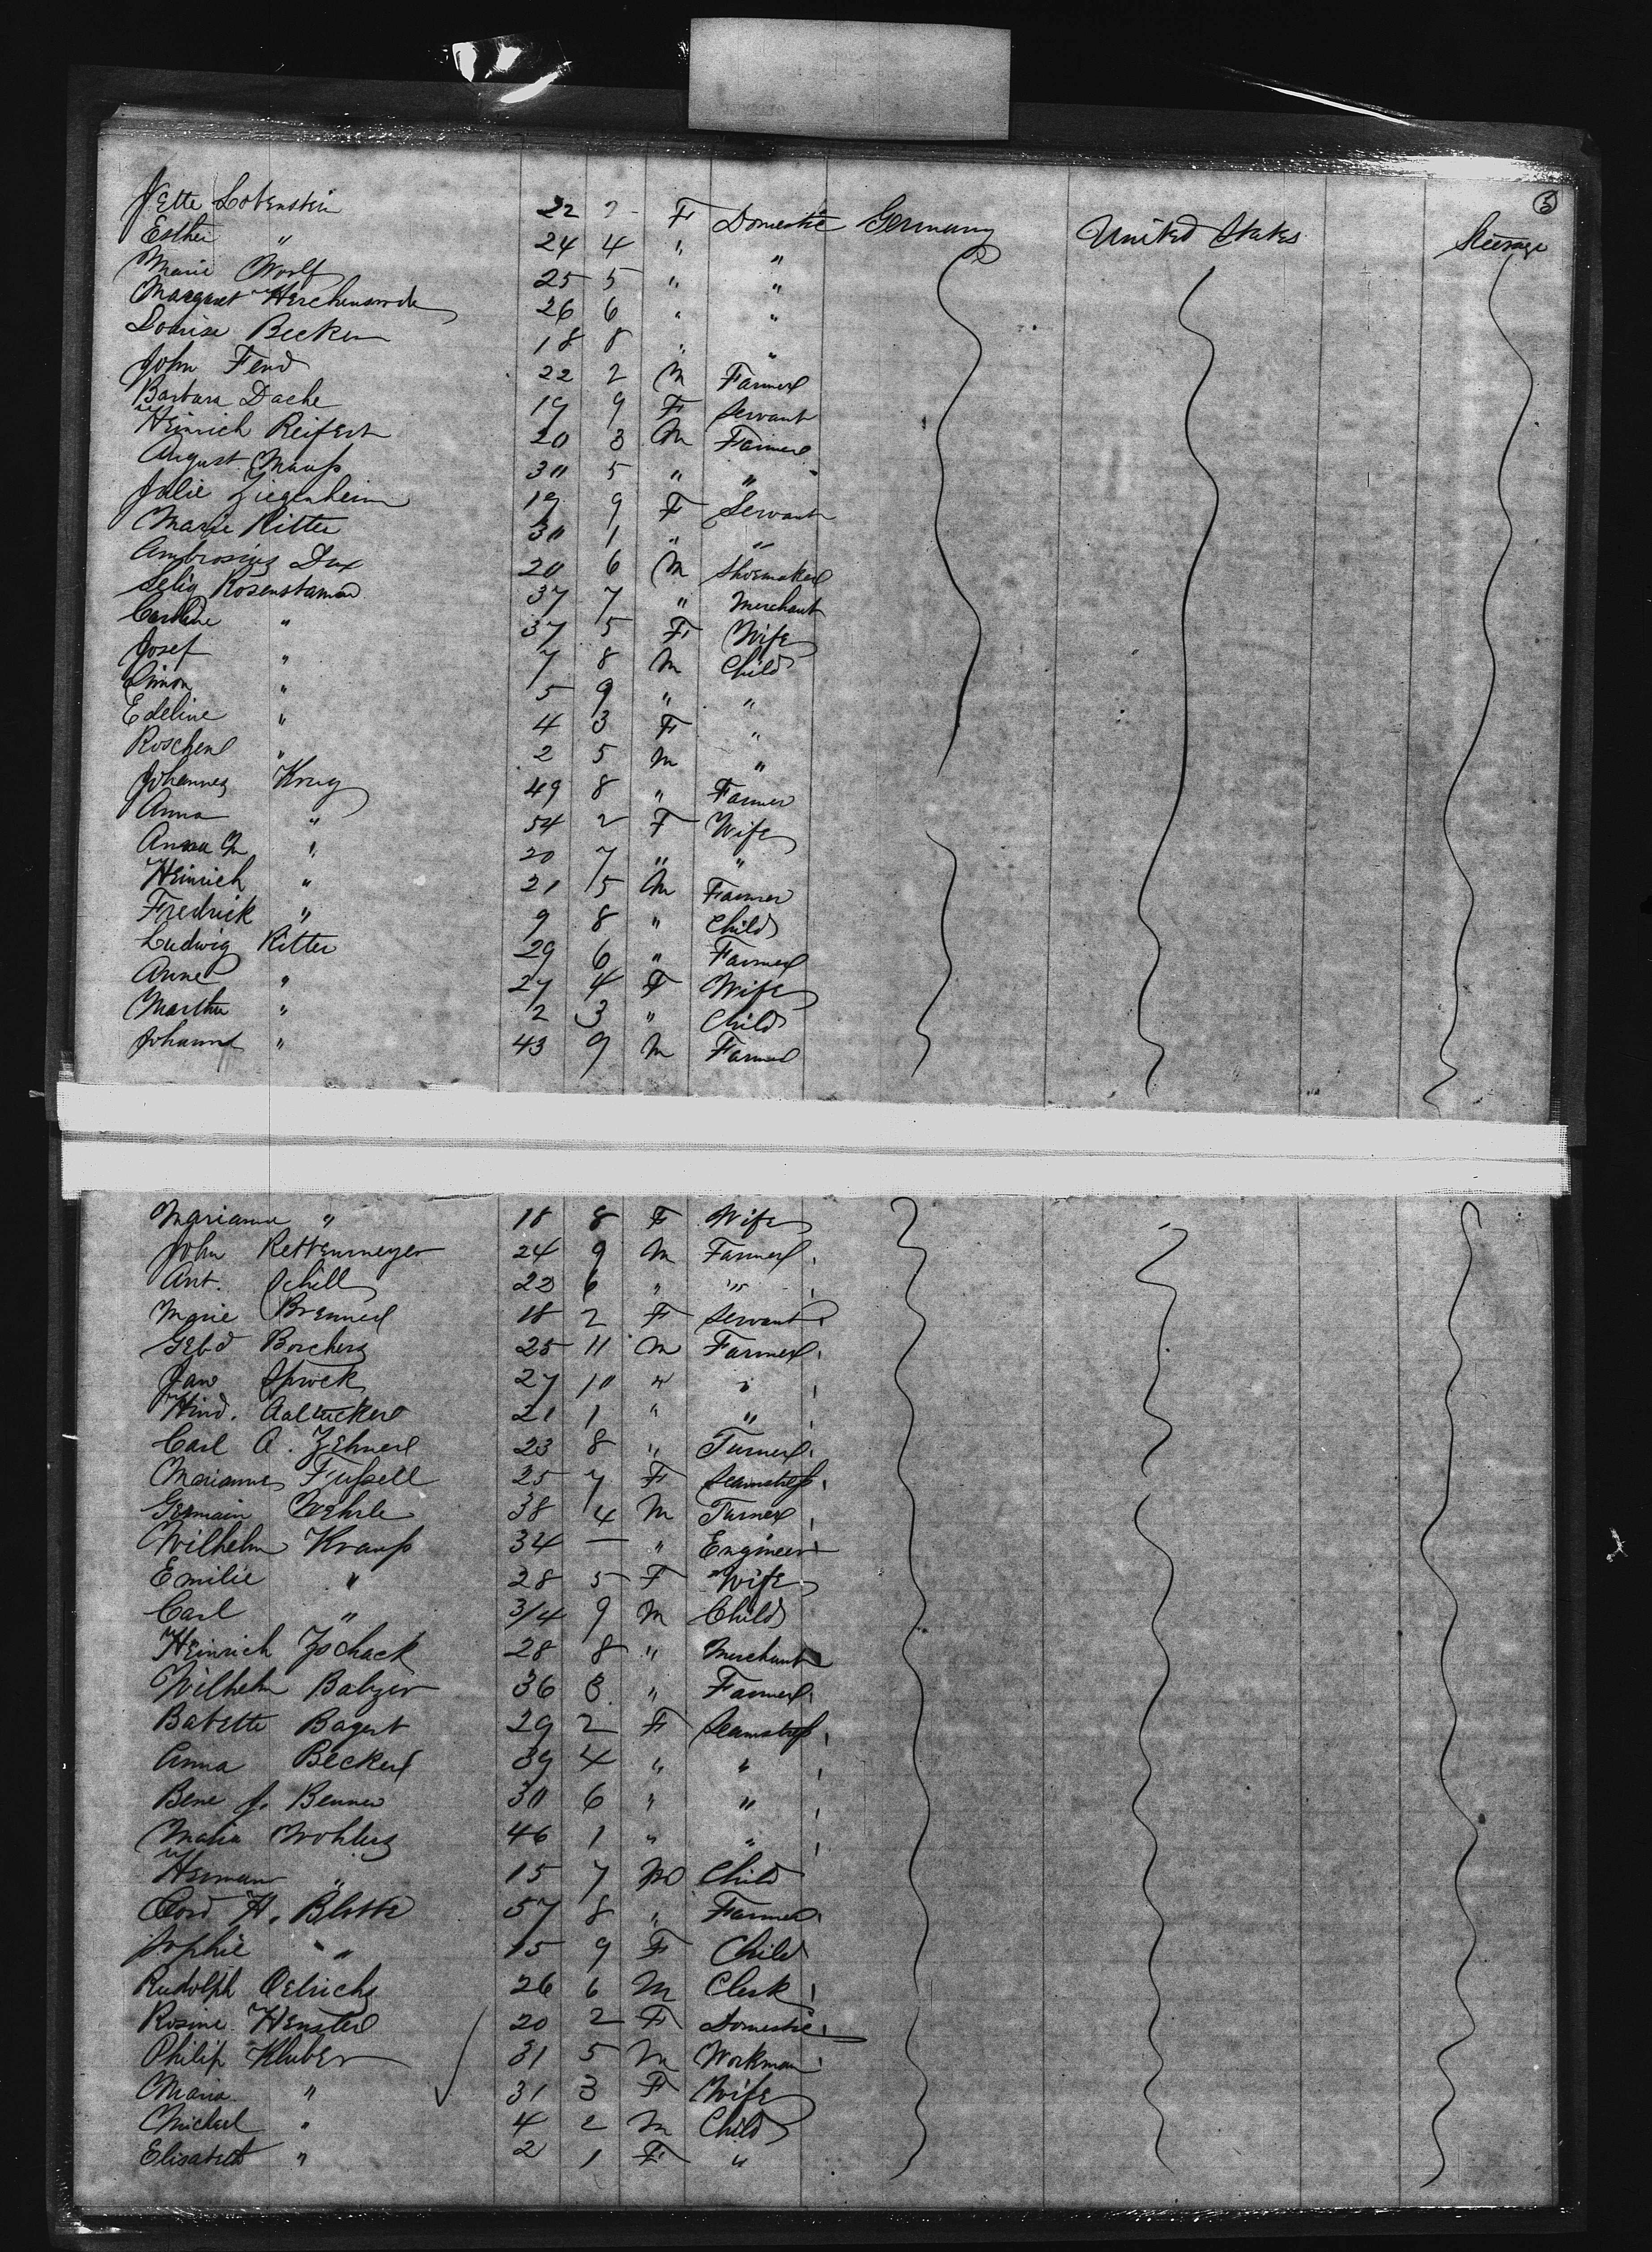 5
Jette Lobenstein 22 2 F Domestic Germany United States Steerage
Esther " 24 4 " "
Marie Woolf 25 5 " "
Margaret 26 6 " "
Louise Becker 18 8 " "
John Fend 22 2 M Farmer
Barbara Dache 19 9 F Servant
Heinrich Reifert 20 3 M Farmer
August Mauß 30 5 " "
Julie Ziegenheim 19 9 F Servant
Marie Ritter 30 1 " "
Ambrosius Dux 20 6 M Shoemaker
Selig Rosenstamm 37 7 " Merchant
Caroline " 37 5 F Wife
Josef " 7 8 M Child
Simon " 5 9 " "
Edeline " 4 3 F "
Roschen " 2 5 M "
Johannes Krug 49 8 " Farmer
Anna " 54 2 F Wife
Anna M " 20 7 " "
Heinrich " 21 5 M Farmer
Fredrick " 9 8 " Child
Ludwig Ritter 29 6 " Farmer
Anne " 27 4 F Wife
Martha " 2 3 " Child
Johannes " 43 9 M Farmer
Marianna " 18 8 F Wife
John Rettenmeyer 24 9 M Farmer
Ant. Schill 22 6 " "
Marie Brenner 18 2 F Servant
Gebd Borchers 25 11 M Farmer
Jan 27 10 " "
Hind. 21 1 " "
Carl A. Zehner 23 8 " Turner
Marianne Fußell 25 7 F Seamstreß
Germain Oehrle 38 4 M Turner
Wilhelm Krauß 34 — " Engineer
Emilie " 28 5 F Wife
Carl " 3/4 9 M Child
Heinrich Zschack 28 8 " Merchant
Wilhelm Balzer 36 3 " Farmer
Babette Bagert 29 2 F Seamstreß
Anna Becker 39 4 " "
Bene J. Benner 30 6 " "
Maria Wohlers 46 1 " "
Herman " 15 7 M Child
Cord H. Blotte 57 8 " Farmer
Sophie " 15 9 F Child
Rudolph Oelrichs 26 6 M Clerk
Rosine Henster 20 2 F Domestic
Philip Kluber 31 5 M Workman
Maria " 31 3 F Wife
Michael " 4 2 M Child
Elisabeth " 2 1 F "